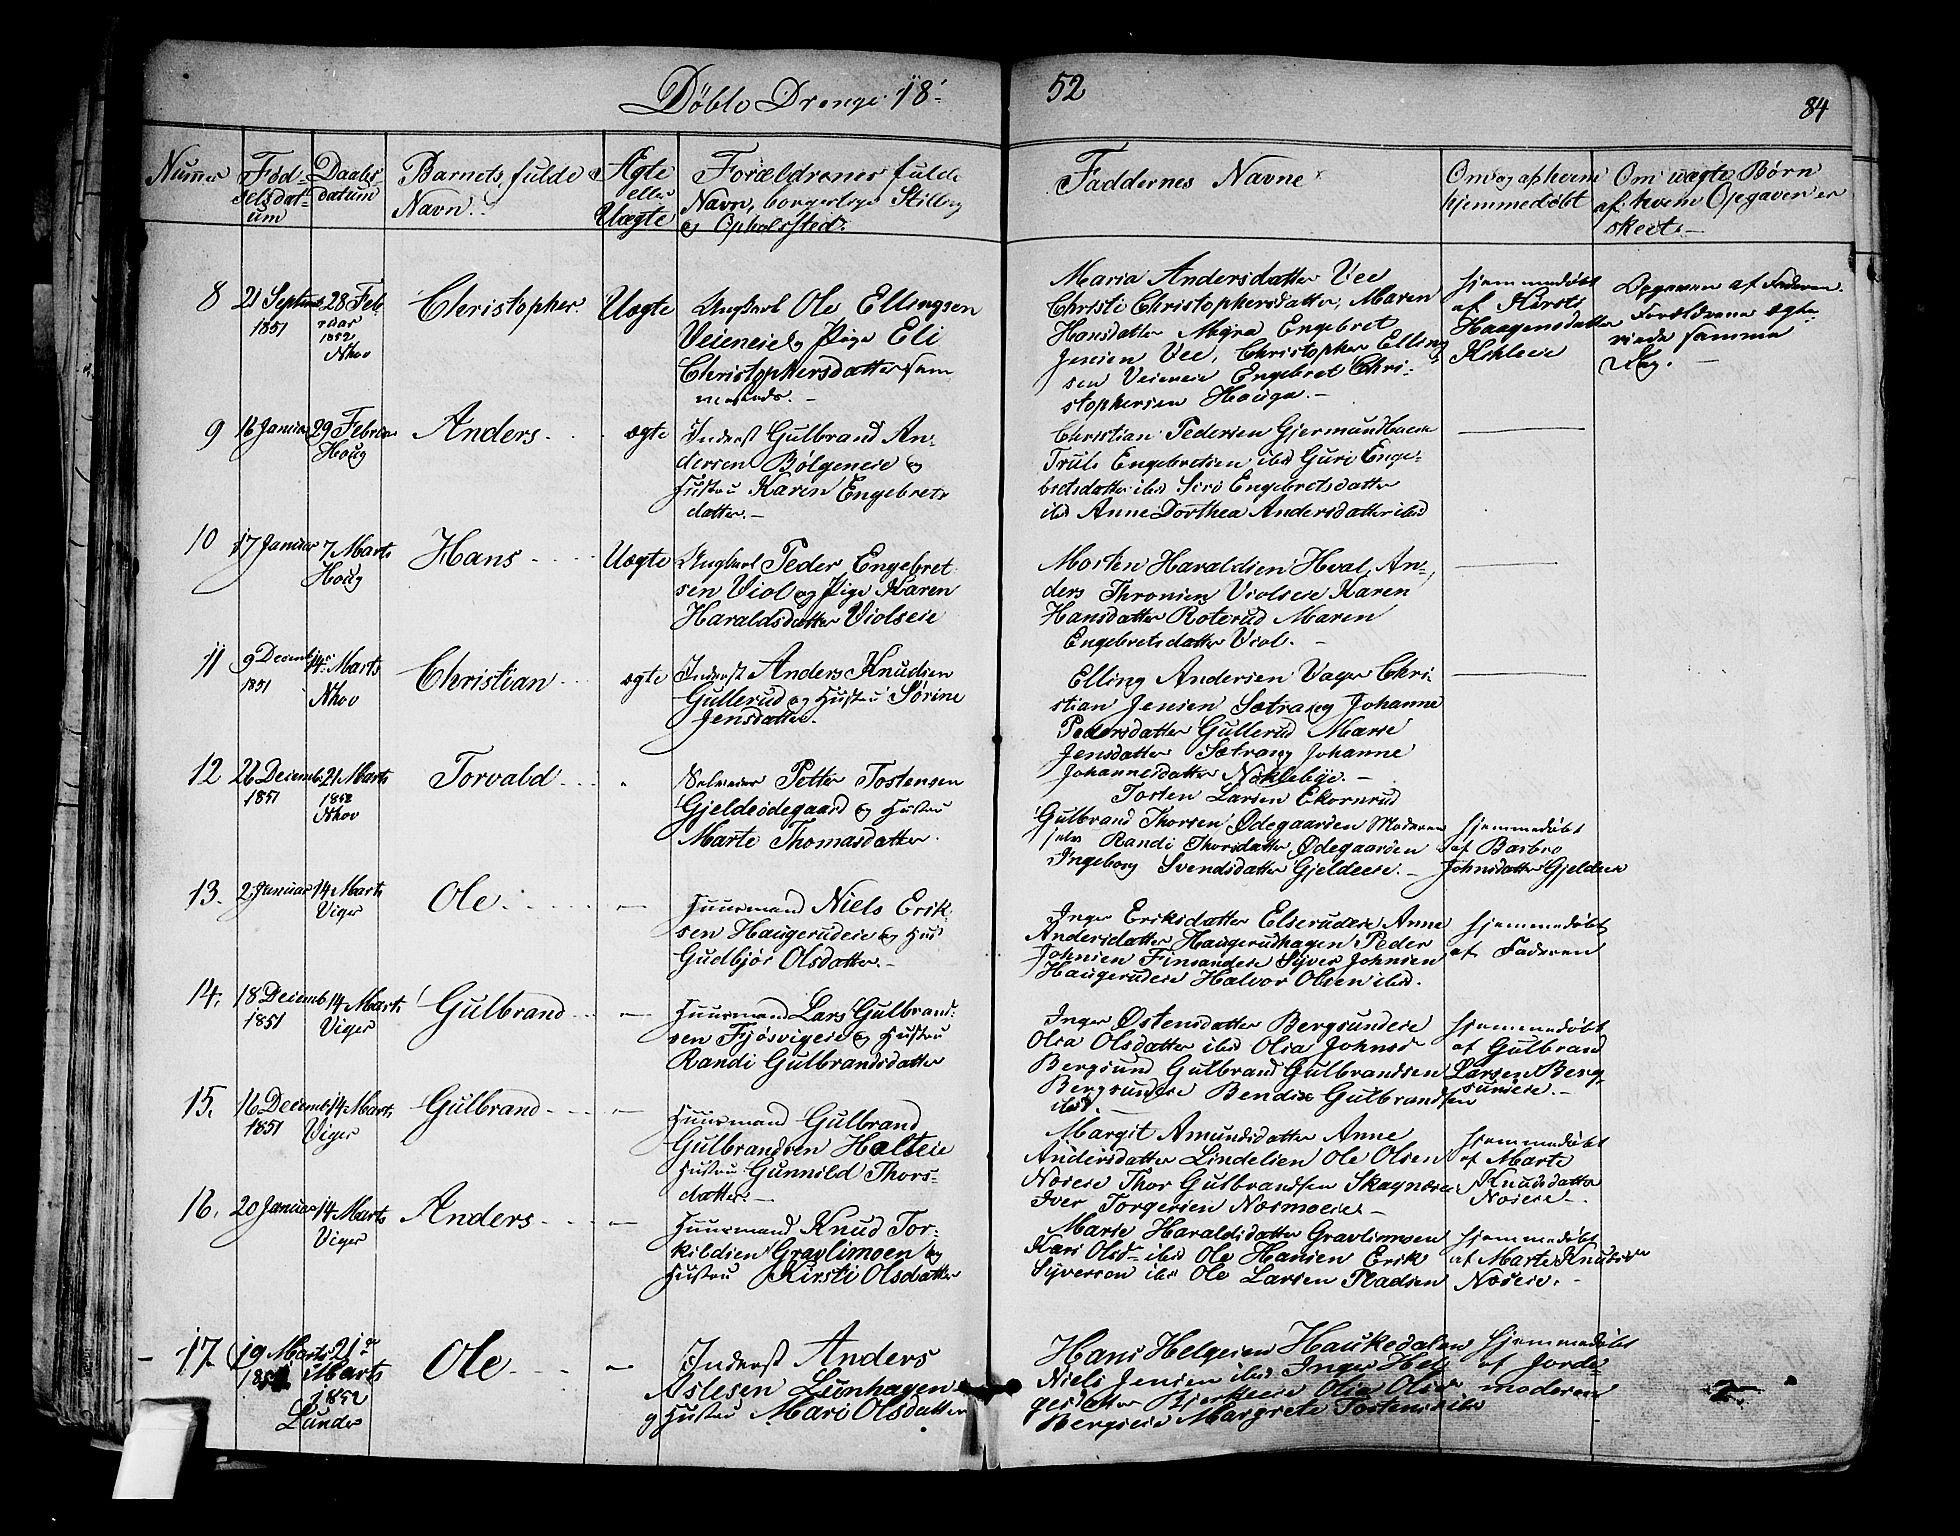 Døbte Drenge 18
52
84
Numer
Fød-
selsdat-
um
Daabs
datum
Barnets fulde
Navn.
Ægte
eller
Uægte
Forældrenes fulde
Navn, borgerlige Stilling
og Opholdsted.
Faddernes Navne
Om og af hvem
hjemmedøbt
Om uægte Børn
af hvem Opgaven er
skeet.
8
21 Septemb
1851
28 Feb
ruar
1852
Nhov
Christopher
Uægte
Ungkarl Ole Ellingsen
Veieneie og Pige Eli
Christophersdatter sam
mesteds.
Maria Andersdatter Vee
Christi Christophersdatter, Maren
Hansdatter Mejra Engebret
Jensen Vee, Christopher Elling
sen Veieneie Engebret Chri-
stophersen Houga.
hjemmedøbt
af Kirsti
Haagensdatter
Opgaven af Faderen
Forældrene ægte-
viede samme
Dag.
9
16 Januar
29 Februar
Houg
Anders
ægte
Inderst Gulbrand An-
dersen Bølgeneie og
Hustru Karen Engebrets
datter.
Christian Pedersen Gjermundboeie
Truls Engebretsen ibd Guri Enge-
bretsdatter ibd Siri Engebretsdatter
ibd Anne Dorthea Andersdatter ibid
10
17 Januar
7 Marts
Houg
Hans
Uægte
Ungkarl Peder Engebret
sen Viol og Pige Karen
Haraldsdatter Violseie
Morten Haraldsen Hval, An-
ders Thronsen Violseie Karen
Hansdatter Roterud Maren
Engebretsdatter Viol.
11
9 Decemb
1851
14 Marts
Nhov
Christian
ægte
Inderst Anders Knudsen
Gullerud og Hustru Sørine
Jensdatter.
Elling Andersen Vager Chri-
stian Jensen Sætrang Johanne
Pedersdatter Gullerud Marie
Jensdatter Sætrang Johanne
Johannesdatter Noklebye.
12
26 Decemb
1851
21 Marts
1852
Nhov
Torvald
Selveier Petter Tostensen
Gjeldeødegaard og Hustru
Marte Thomasdatter.
Tosten Larsen Ekornrud
Gulbrand Thorsen Ødegaarden Moderen
selv Randi Thorsdatter Ødegaarden
Ingeborg Svendsdatter Gjeldeeie.
hjemmedøbt
af Barbro
Johnsdatter Gjeldeeie
13.
2 Januar
14 Marts
Viger
Ole
Huusmand Niels Erik-
sen Haugerudeie og Hust
Gudbjør Olsdatter.
Inger Eriksdatter Elserudeie Anne
Andersdatter Haugerudhagen Peder
Johnsen Finsandeie Syver Johnsen
Haugerudeie Halvor Olsen ibd.
hjemmedøbt
af Faderen
14.
18 Decemb
1851
14 Marts
Viger
Gulbrand
Huusmand Lars Gulbrand-
sen Fjøsvigeie og Hustru
Randi Gulbrandsdatter
Inger Østensdatter Bergsundeie
Olia Olsdatter ibd Olia Johnsd
Bergsund Gulbrand Gulbrandsen
Bergsundeie Bendix Gulbrandsen
ibd.
hjemmedøbt
af Gulbrand
Larsen Berg-
sundeie.
15.
16 Decemb
1851
14 Marts
Viger
Gulbrand
Huusmand Gulbrand
Gulbrandsen Halseie
Hustru Gunnild Thors-
datter.
Margit Amundsdatter Anne
Andersdatter Lindelien Ole Olsen
Næseie Thor Gulbrandsen Skagnæseie
Iver Torgersen Næsmoeie
hjemmedøbt
af Marte
Knudsdatter
Næseie
16.
20 Januar
14 Marts
Viger
Anders
Huusmand Knud Tor-
kildsen Gravlimoen og
Hustru Kirsti Olsdatter
Marie Haraldsdatter Gravlimoen
Kari Olsdr ibd Ole Hansen Erik
Syversen ibd Ole Larsen Pladsen
hjemmedøbt
af Marte Knutsdr
Næseie.
17
19 Marts
21de
Marts
1852
Lunder
Ole
Inderst Anders
Aslesen Lunhagen
og Hustru Mari Olsdatter
Hans Helgesen Haukedalen
Niels Jensen ibd Inger Hel-
gesdatter Bjerkeeie Olia Olsd
Bergseie Margrete Tostensd ibd
hjemmedøbt
af Jorde
moderen
2